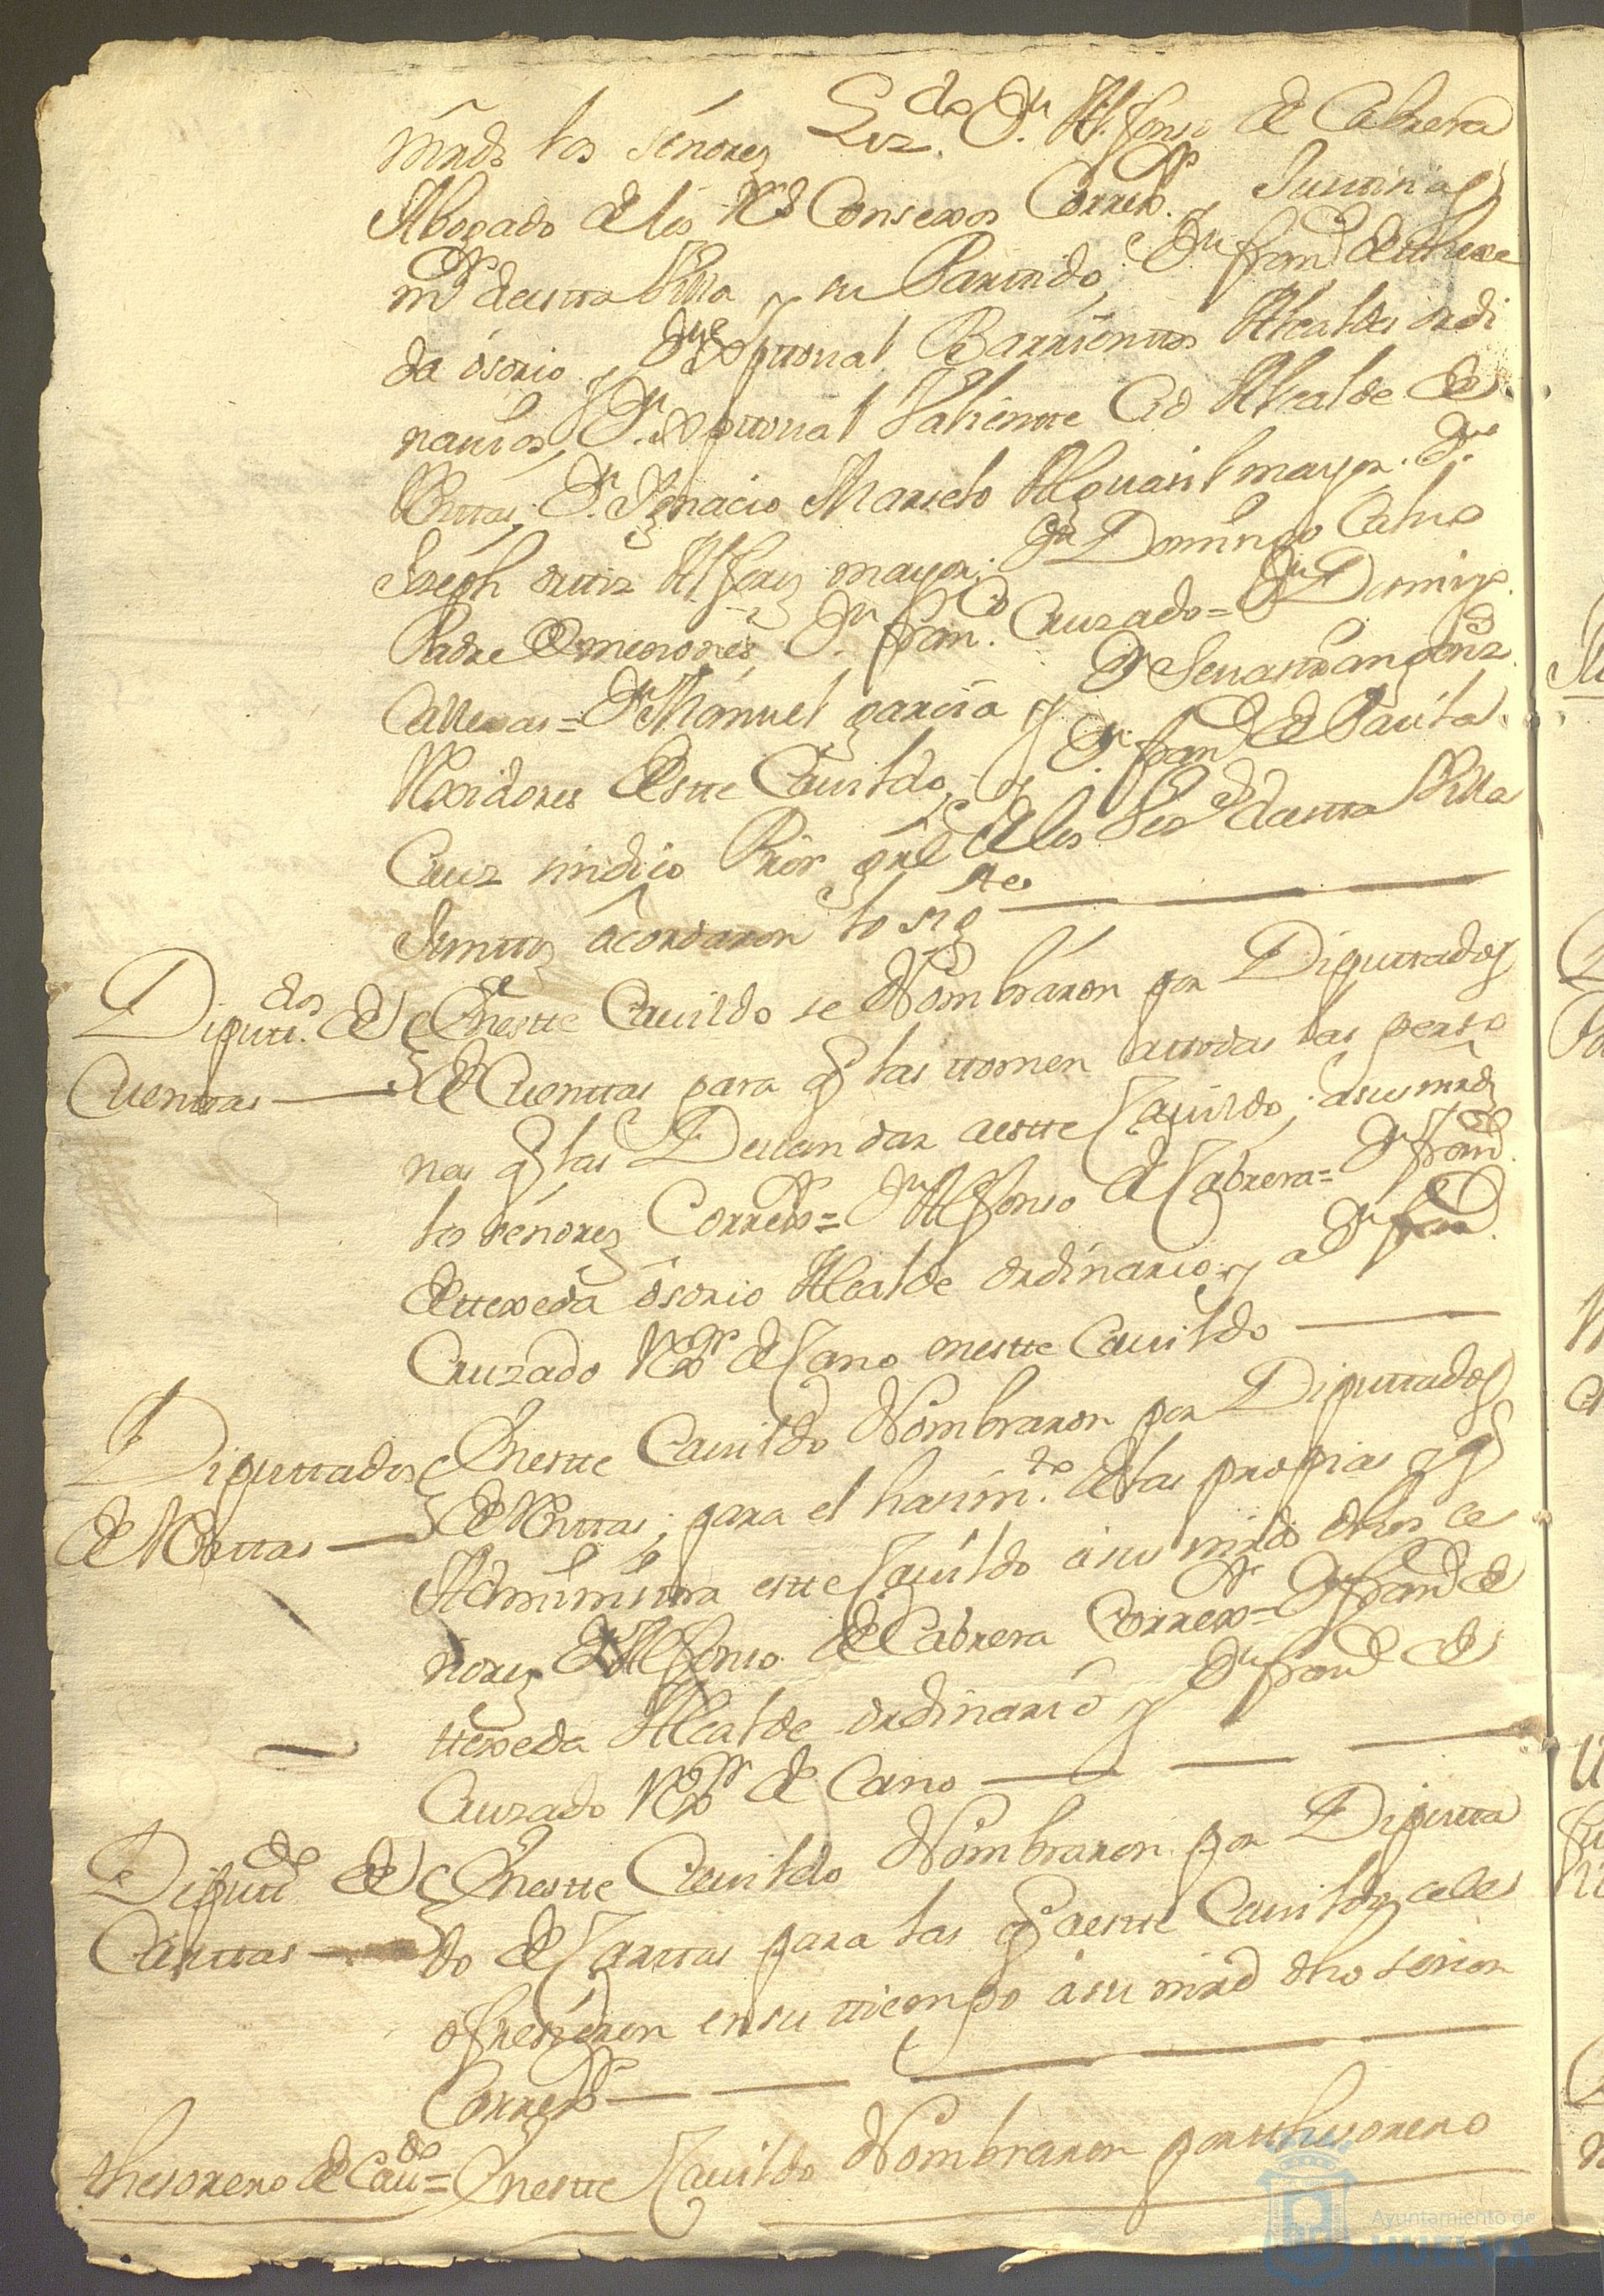 mrds los señores Lizdo. Dn. Alfonso de Cabrera
Abogado de los Rs Consexos Correxor. y Justizia
mor desta Villa y su Partido, Dn franco de thexe
da osorio y Dn Xptoual Barrientos Alcaldes ordi
narios, Dn. Xptoual Valiente Cid Alcalde de
Rentas, Dn. Ignacio Marselo Alguasil mayor. Dn.
Joseph ortiz Alferez mayor. Dn Domingo Calvo
Padre de menores, Dn. franco. Cruzado = Dn Domingo.
Callexas = Dn Manuel garcia y Dn Sevastian gonz
Rexidores deste Cavildo, y Dn. franco de Paula
Cruz sindico Pror grl de los Vezos desta Villa
Juntos acordaron lo sigte
Diputtdos. de
Cuenttas
En este Cavildo se Nombraron por Diputtados
de Cuenttas para q las ttomen attodas las perso
nas q las Devan dar aeste Cavildo; asus mrds
los señores Correxor = Dn Alfonso de Cabrera = Dn franco
de ttexeda osorio Alcalde ordinario, y a Dn franco.
Cruzado Rexor de Cano eneste Cavildo
Diputtados
de Renttas
Eneste Cavildo Nombraron por Diputtados
de Renttas, para el hasimto. de las propias q
Administra este Cavildo a sus mrds dhos se
ñores Dn Alfonso de Cabrera Correxor = Dn franco de
ttexeda Alcalde ordinario y Dn franco de
Cruzado Rexor de Cano
Diputtdo de
Carttas
Eneste Cavildo Nombraron por Diputta
do de Carttas para las q aeste Cavildo sele
ofresieren ensu ttiempo asu mrd dho señor
Correxor
thesorero de Cavdo =
Eneste Cavildo Nombraron por thesorero
Ayuntamiento de
HUELVA